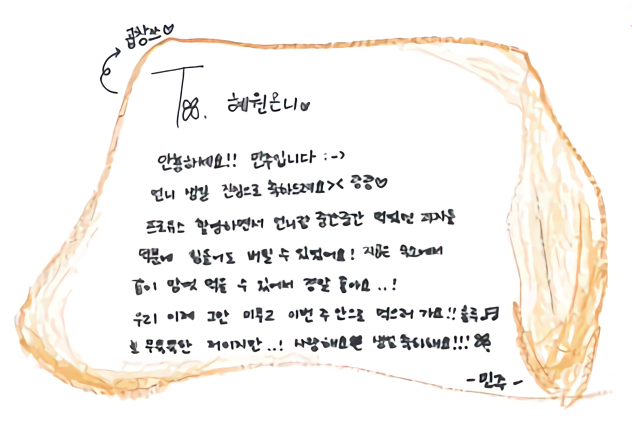 곱창쓰♡
To. 혜원언니♡
안녕하세요!! 민주입니다 :->
언니 생일 진심으로 축하드려요>< 쿵쿵♡
프로듀스 촬영하면서 언니랑 중간중간 먹었던 과자들
덕분에 힘들어도 버틸 수 있었어요! 지금은 숙소에서
같이 맘껏 먹을 수 있어서 정말 좋아요..!
우리 이제 그만 미루고 이번 주 안으로 먹으러 가요!! 룰루♬
또 무뚝뚝한 저이지만..! 사랑해요 생일 축하해요!!!
-민주-